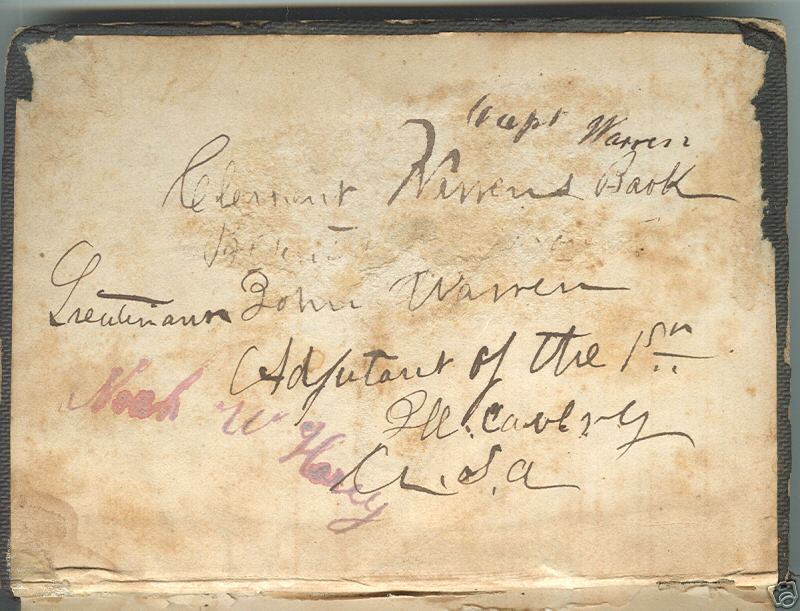 Capt Warren
Clemont Warrens Book
Lieutinann John Warren
Adjutant of the 1st
Ill. Cavelry
U.S.A
Noah W Haney